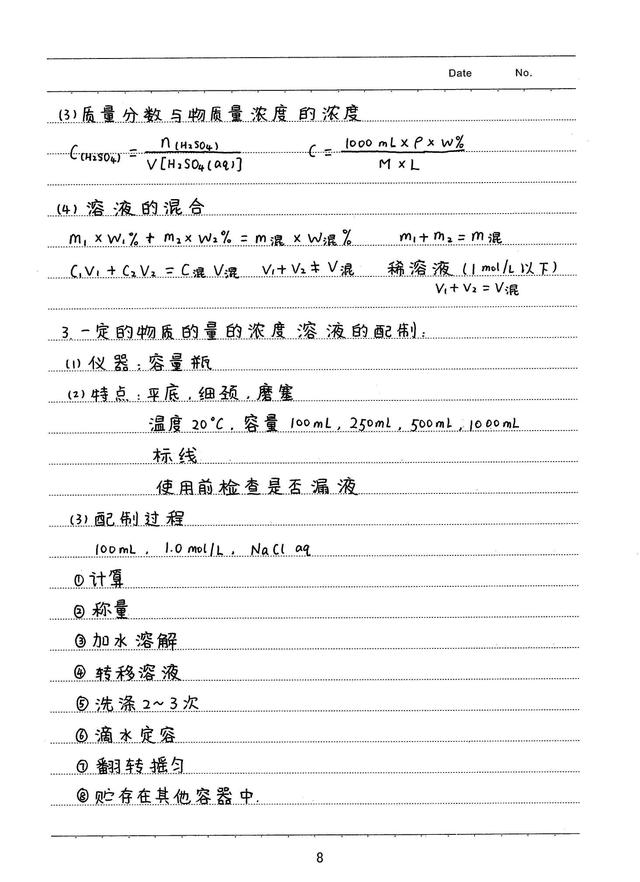 Date No.
(3) 质量分数与物质量浓度的浓度
C(H₂SO₄) = n(H₂SO₄) / V[H₂SO₄(aq)] C = 1000 mL × ρ × W% / M × L
(4) 溶液的混合
m₁ × W₁% + m₂ × W₂% = m混 × W混% m₁ + m₂ = m混
C₁V₁ + C₂V₂ = C混 V混 V₁ + V₂ ≠ V混 稀溶液 (1 mol/L 以下)
V₁ + V₂ = V混
3. 一定的物质的量的浓度溶液的配制:
(1) 仪器: 容量瓶
(2) 特点: 平底, 细颈, 磨塞
温度 20°C, 容量 100mL, 250mL, 500mL, 1000mL
标线
使用前检查是否漏液
(3) 配制过程
100mL, 1.0mol/L, NaCl aq
① 计算
② 称量
③ 加水溶解
④ 转移溶液
⑤ 洗涤 2~3次
⑥ 滴水定容
⑦ 翻转摇匀
⑧ 贮存在其他容器中.
8